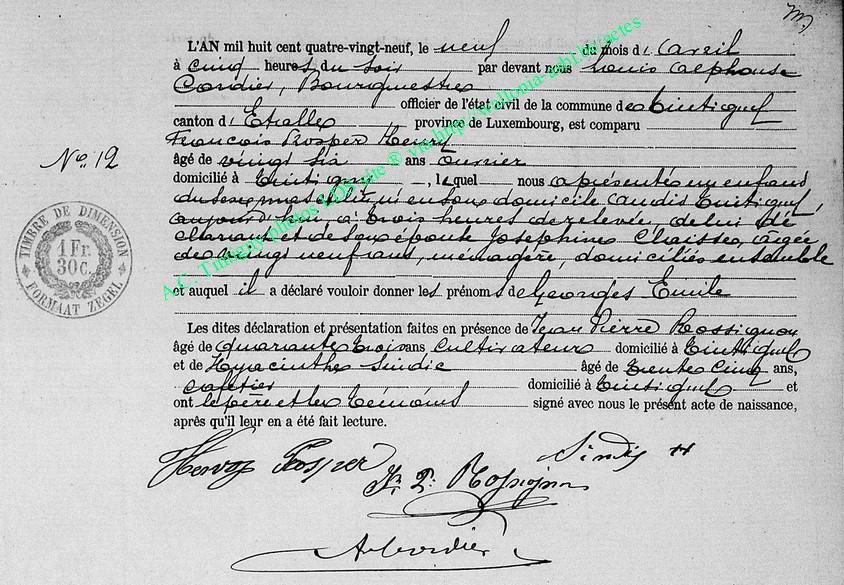 L'AN mil huit cent quatre-vingt-neuf, le neuf du mois d'Avril
à cinq heures du soir par devant nous Louis Alphonse
Cordier, Bourgmestre
officier de l'état civil de la commune de Tintigny
canton d'Etalle province de Luxembourg, est comparu
François Prosper Henry
N° 12
âgé de vingt six ans ouvrier
domicilié à Tintigny, lequel nous a présenté un enfant
du sexe masculin né en son domicile audit Tintigny,
aujourd'hui à trois heures de relevée, de lui dé
clarant et de son épouse Joséphine Chaisse, âgée
de vingt neuf ans, ménagère, domiciliés ensemble
et auquel il a déclaré vouloir donner les prénoms de Georges Emile
Les dites déclaration et présentation faites en présence de Jean Pierre Rossignon
âgé de quarante trois ans cultivateur domicilié à Tintigny
et de Hyacinthe Sindic âgé de trente cinq ans,
cafetier domicilié à Tintigny et
ont le père et les témoins signé avec nous le présent acte de naissance,
après qu'il leur en a été fait lecture.
TIMBRE DE DIMENSION
1 Fr.
30 c.
FORMAAT ZEGEL
Henry Prosper
Sindic
Jn. P. Rossignon
A. Cordier
A.C. Tintigny photos LDS site ® via http://wallonia-asbl.be/actes